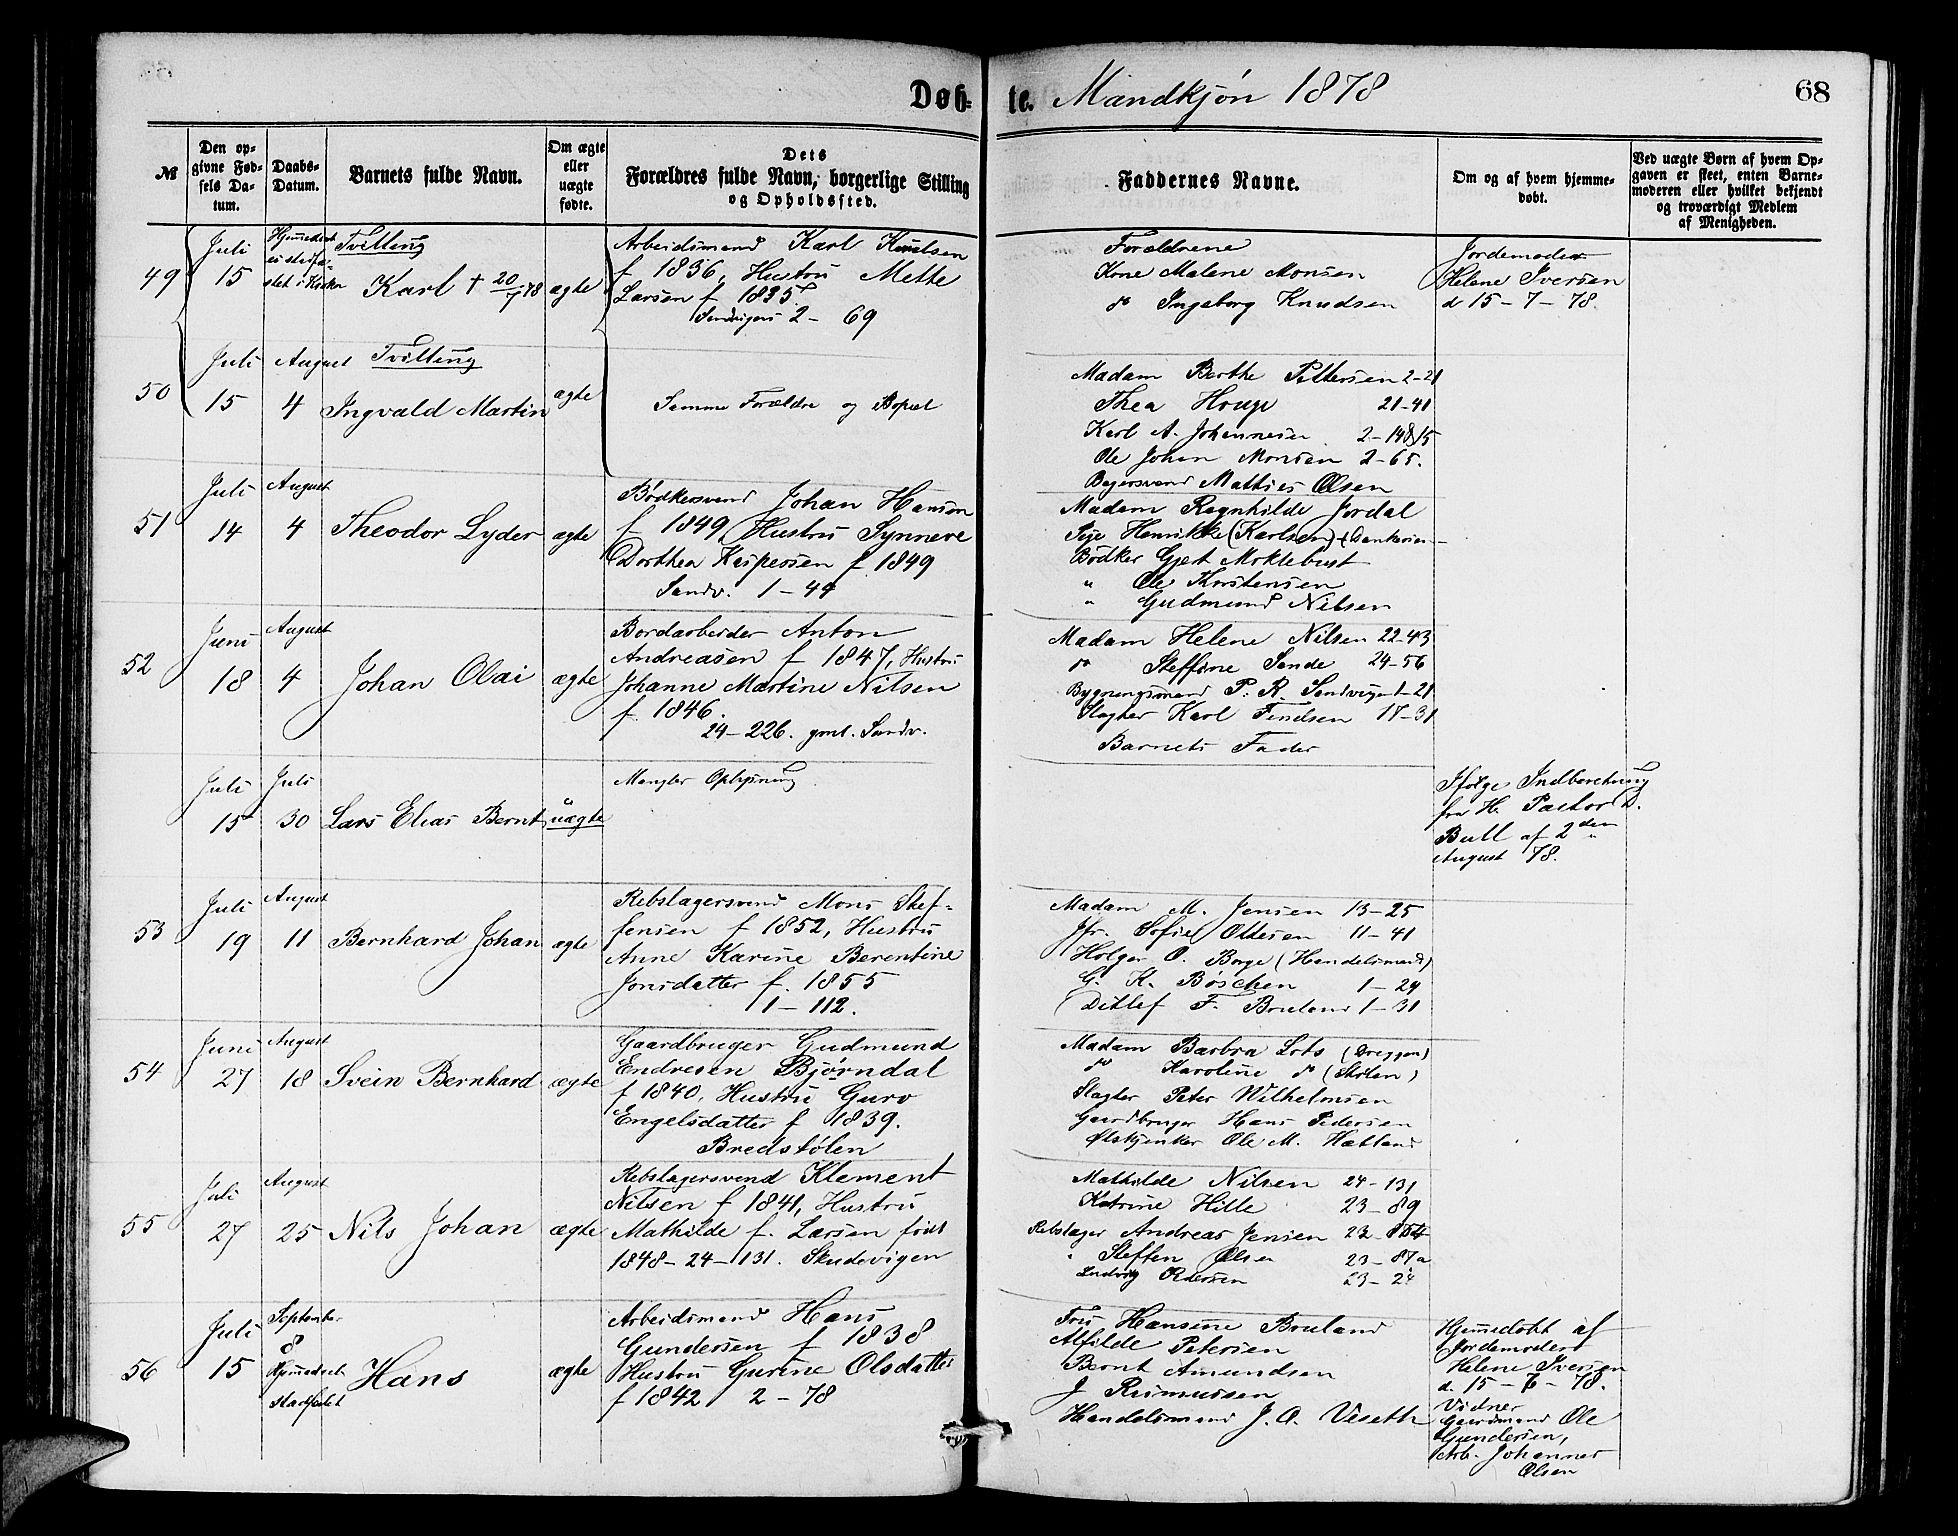 Døb- te. Mandkjøn 1878
68
№
Den op-
givne Fød-
sels Da-
tum.
Daabs-
Datum.
Barnets fulde Navn.
Om ægte
eller
uægte
fødte.
Dets
Forældres fulde Navn, borgerlige Stilling
og Opholdssted.
Faddernes Navne.
Om og af hvem hjemme-
døbt.
Ved uægte Børn af hvem Op-
gaven er skeet, enten Barne-
moderen eller hvilket bekjendt
og troværdigt Medlem
af Menigheden.
49
Juli
15
Hjemmedøbt
Tvilling
Karl † 20/7 78
ægte
Arbeidsmand Karl Knutsen
f 1836, Hustru Mette
Larsen f 1835.
2 - 69
Forældrene
Kone Malene Monsen
do Ingeborg Knudsen
Jordemoder
Helene Iversen
d 15 - 7 - 78.
50
Juli
15
August
4
Tvilling
Ingvald Martin
ægte
Samme Forældre og Bopæl
Madam Berthe Pettersen 2-21
Thea Houge 21-41
Karl A. Johannesen
Ole Johan Monsen 2-65.
Mathies Olsen
51
Juli
14
August
4
Theodor Lyder
ægte
Bødkersvend Johan Hansen
f 1849, Hustru Synneve
Dorthea Kaspersen f. 1849
Sandv. 1 - 44
Madam Ragnhilde Jordal
Pige Henrikke (Karlsen)
Bødker Gjert Moktebust
" Ole Thorstensen
" Gudmund Nilsen
52
Juni
18
August
4
Johan Olai
ægte
Bordarbeider Anton
Andreasen f 1847, Hustru
Johanne Martine Nilsen
f. 1846.
24 - 226. gml. Sandv.
Madam Helene Nilsen 22-43
do Steffine Sande 24-56
Bygningsmand P. R. Sandvigen 1-21
Slagter Karl Findsen 17-31
Barnets Fader
Juli
15
Juli
30
Lars Elias Bernt
uægte
Mangler Oplysning
Ifølge Indberetning
fra H. Pastor
Bull af 2den
August 78.
53
Juli
19
August
11
Bernhard Johan
ægte
Rebslagersvend Mons Stef-
fensen f 1852, Hustru
Anne Karine Berentine
Jonsdatter f. 1855
1 - 112.
Madam M. Jensen 13-25
Jfr. Sofie Ottesen 11-41
Holger O. Borge (Handelsmand)
G. K. Bøschen 1-29
Ditlef F. Bruland 1-31
54
Juni
27
August
18
Svein Bernhard
ægte
Gaardbruger Gudmund
Endresen Bjørndal
f 1840, Hustru Guro
Engelsdatter f 1839.
Bredstølen
Madam Barbra Lots (Dreggen)
do Karoline do (Skolen)
Slagter Peter Wilhelmsen
Gaardbruger Hans Pedersen
Ølskjenker Ole M. Hatland
55
Juli
27
August
25
Nils Johan
ægte
Rebslagersvend Klement
Nilsen f 1841, Hustru
Mathilde f. Larsen født
1848 - 24 - 131. Skudevigen
Mathilde Nilsen 24-131
Katrine Hille 23-89
Rebslager Andreas Jensen 23-
" Steffen Olsen 23-87a
Ludvig 23-24
56
Juli
15
September
8
Hjemmedøbt
Stadfæstet
Hans
ægte
Arbeidsmand Hans
Gundersen f 1838
Hustru Gurine Olsdatter
f 1842 2 - 78
Fru Hansine Bruland
Alfilde Petersen
Bernt Amundsen
J Rasmussen
Handelsmand J. A. Veseth
Hjemmedøbt af
Jordemoder
Helene Iversen
d. 15 - 7 - 78.
Vidner
Gaardmand Ole
Gundersen,
Arb. Johannes
Olsen